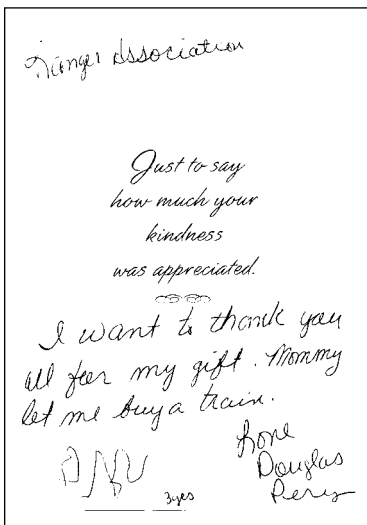 Ranger Association
Just to say
how much your
kindness
was appreciated.
I want to thank you
all for my gift. Mommy
let me buy a train.
3yrs
Love
Douglas
Perry